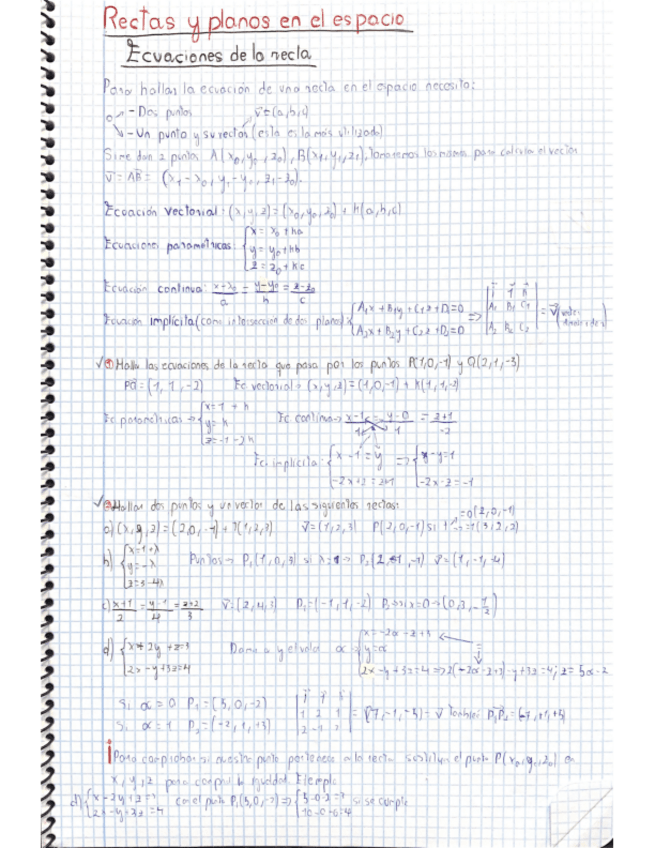 Rectas y planos en el espacio
Ecuaciones de la recta
Para hallar la ecuación de una recta en el espacio necesito:
- Dos puntos v=(a,b,c)
- Un punto y su vector (esta es la más utilizada)
Si me dan 2 puntos A(x₀,y₀,z₀), B(x₁,y₁,z₁), tomaremos los mismos para calcular el vector
v⃗ = AB⃗ = (x₁-x₀, y₁-y₀, z₁-z₀).
Ecuación vectorial: (x,y,z)=(x₀,y₀,z₀)+k(a,b,c)
Ecuaciones paramétricas {x = x₀+ka
y = y₀+kb
z = z₀+kc
Ecuación continua: x-x₀/a = y-y₀/b = z-z₀/c
Ecuación implícita (como intersección de dos planos): {A₁x+B₁y+C₁z+D₁=0
A₂x+B₂y+C₂z+D₂=0 => |i j k
A₁ B₁ C₁
A₂ B₂ C₂| = v⃗ (vector
① Halla las ecuaciones de la recta que pasa por los puntos P(1,0,-1) y Q(2,1,-3)
PQ⃗ = (1, 1, -2) Ec vectorial → (x,y,z)=(1,0,-1)+k(1,1,-2)
Ec paramétricas → {x=1+k
y=k
z=-1-2k
Ec continua → x-1/1 = y-0/1 = z+1/-2
Ec. implícita: {x-1=y
-2x+2=z+1 => {x-y=1
-2x-z=-1
② Hallar dos puntos y un vector de las siguientes rectas:
a) (x,y,z)=(2,0,-1)+λ(1,2,3) v⃗=(1,2,3) P(2,0,-1) si λ=0(2,0,-1)
λ=1(3,2,2)
b) {x=1+λ
y=-λ
z=3-4λ
Puntos → P₁(1,0,3) si λ=1 → P₂(2,-1,-1) v⃗=(1,-1,-4)
c) x+1/2 = y-1/4 = z+2/3 v⃗=(2,4,3) P₁=(-1,1,-2) P₂→si x=0→(0,3,-1/2)
d) {x+2y+z=3
2x-y+3z=4
Damos a y el valor α → {x=-2α-z+3
y=α
2x-y+3z=4 => 2(-2α-z+3)-y+3z=4; z=5α-2
Si α=0 P₁=(5,0,-2) |i j k
1 2 1
2 -1 3| = (7,-1,-5) = v⃗ También P₁P₂=(-7,1,+5)
Si α=1 P₂=(-2,1,+3)
¡Para comprobar si nuestro punto pertenece a la recta sustituir el punto P(x₀,y₀,z₀) en
x, y, z para comprobar la igualdad. Ejemplo
d) {x-2y+z=3
2x-y+3z=4
con el punto P₁(5,0,-2) => {5-0-2=3
10-0-6=4 si se cumple